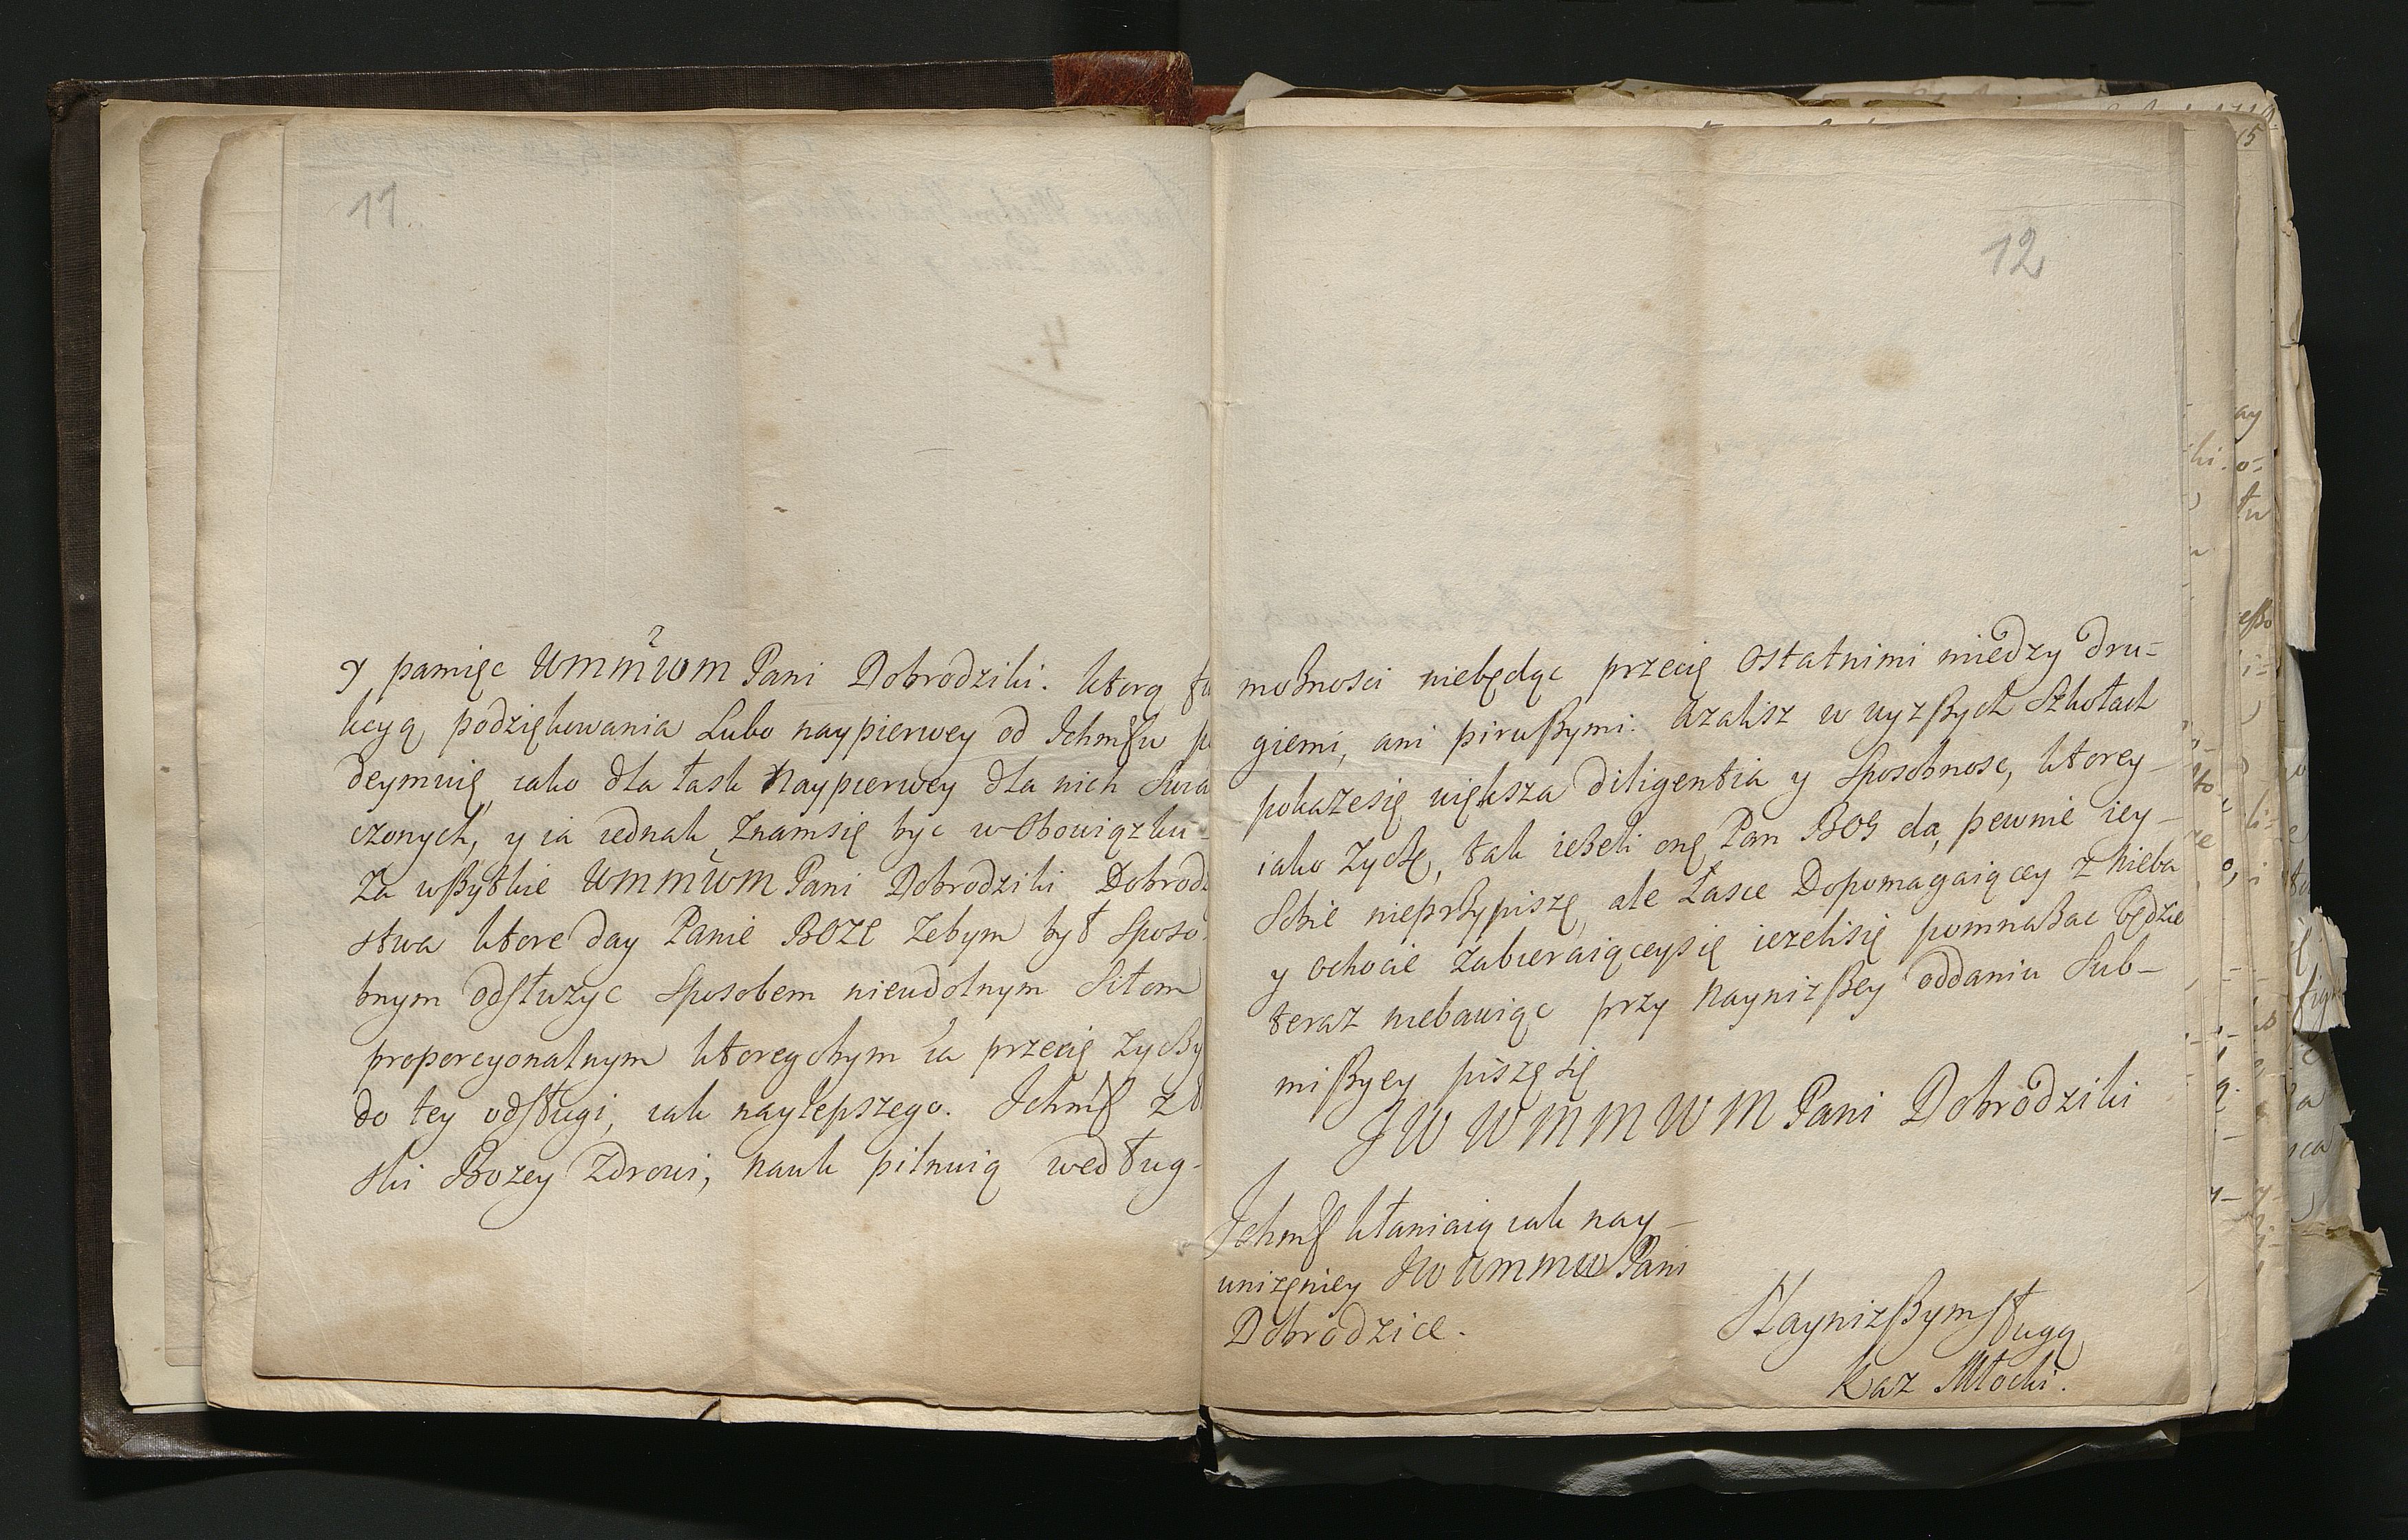 11.
y pamięc WMMWM Pani Dobrodziki. ktorą
kcyą podziękowania Lubo naypierwey od Ichmſw
deymuię, iako dla łask Naypierwey dla nich
czonych, y ia iednak znamsię byc w Obowiązku
Za wßytkie WMMWM Pani Dobrodziki
stwa ktore day Panie BOZE Zebym był Sposo-
bnym odſłużyc Sposobem nieudolnym Siłom
proporcyonalnym ktoregobym ia przecię
do tey odſługi, iak naylepszego. Ichmſ
ski Bozey Zdrowi, nauk pilnuią według-
12
możnosci niebędąc przecię Ostatnimi między dru-
giemi, ani pirwßymi. Azalisz w wyzßych Szkołach
pokazesię większa diligentia y Sposobnosc, ktorey-
iako Zyczę, tak ieżeli onę Pan BOG da, pewnie iey-
Sobie nieprzypiszę, ale Łasce Dopomagaiącey z nieba
y ochocie Zabieraiąceysię iezelisię pomnażac będzie
teraz niebawiąc przy Naynizßey oddaniu Sub-
mißyey piszę się
JWWMMWM Pani Dobrodziki
Ichmſ kłaniaią iak nay-
unizęniey JWWMMW Pani
Dobrodzice.
Nayniz̄ßym ſługą
Kaz Młocki.